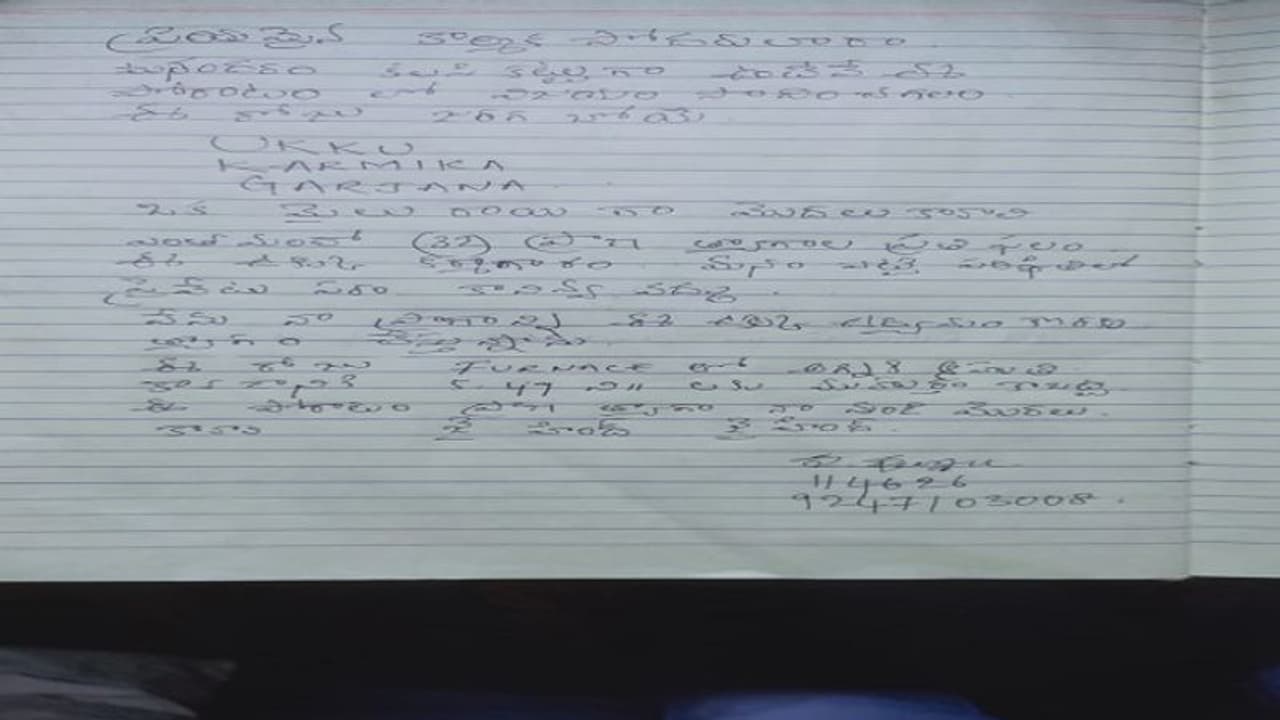 ప్రియమైన కార్మిక సోదరులారా
మనందరం కలసి కట్టుగా ఉంటేనే ఈ
పోరాటం లో విజయం సాధించగలం
ఈ రోజు జరగ బోయే
UKKU
KARMIKA
GARJANA
ఒక మైలు రాయి గా మొదలు కావాలి
ఎంతో మందో (32) ప్రాణ త్యాగాల ప్రతి ఫలం
ఈ ఉక్కు కర్మాగారం మనం ఎట్టి పరిస్థితిలో
ప్రైవేటు పరం కానివ్వ వద్దు.
నేను నా (ప్రాణాన్ని) ఈ ఉక్కు ఉద్యమం కొరకు
త్యాగం చేస్తున్నాను
ఈ రోజు FURNACE లో అగ్నికి ఆహుతి
5.47 ని॥ లకు ముహూర్తం
ఈ పోరాటం ప్రాణ త్యాగం నా నుండి మొదలు.
కావాలి జై హింద్ జై హింద్.
114626
9247103008.